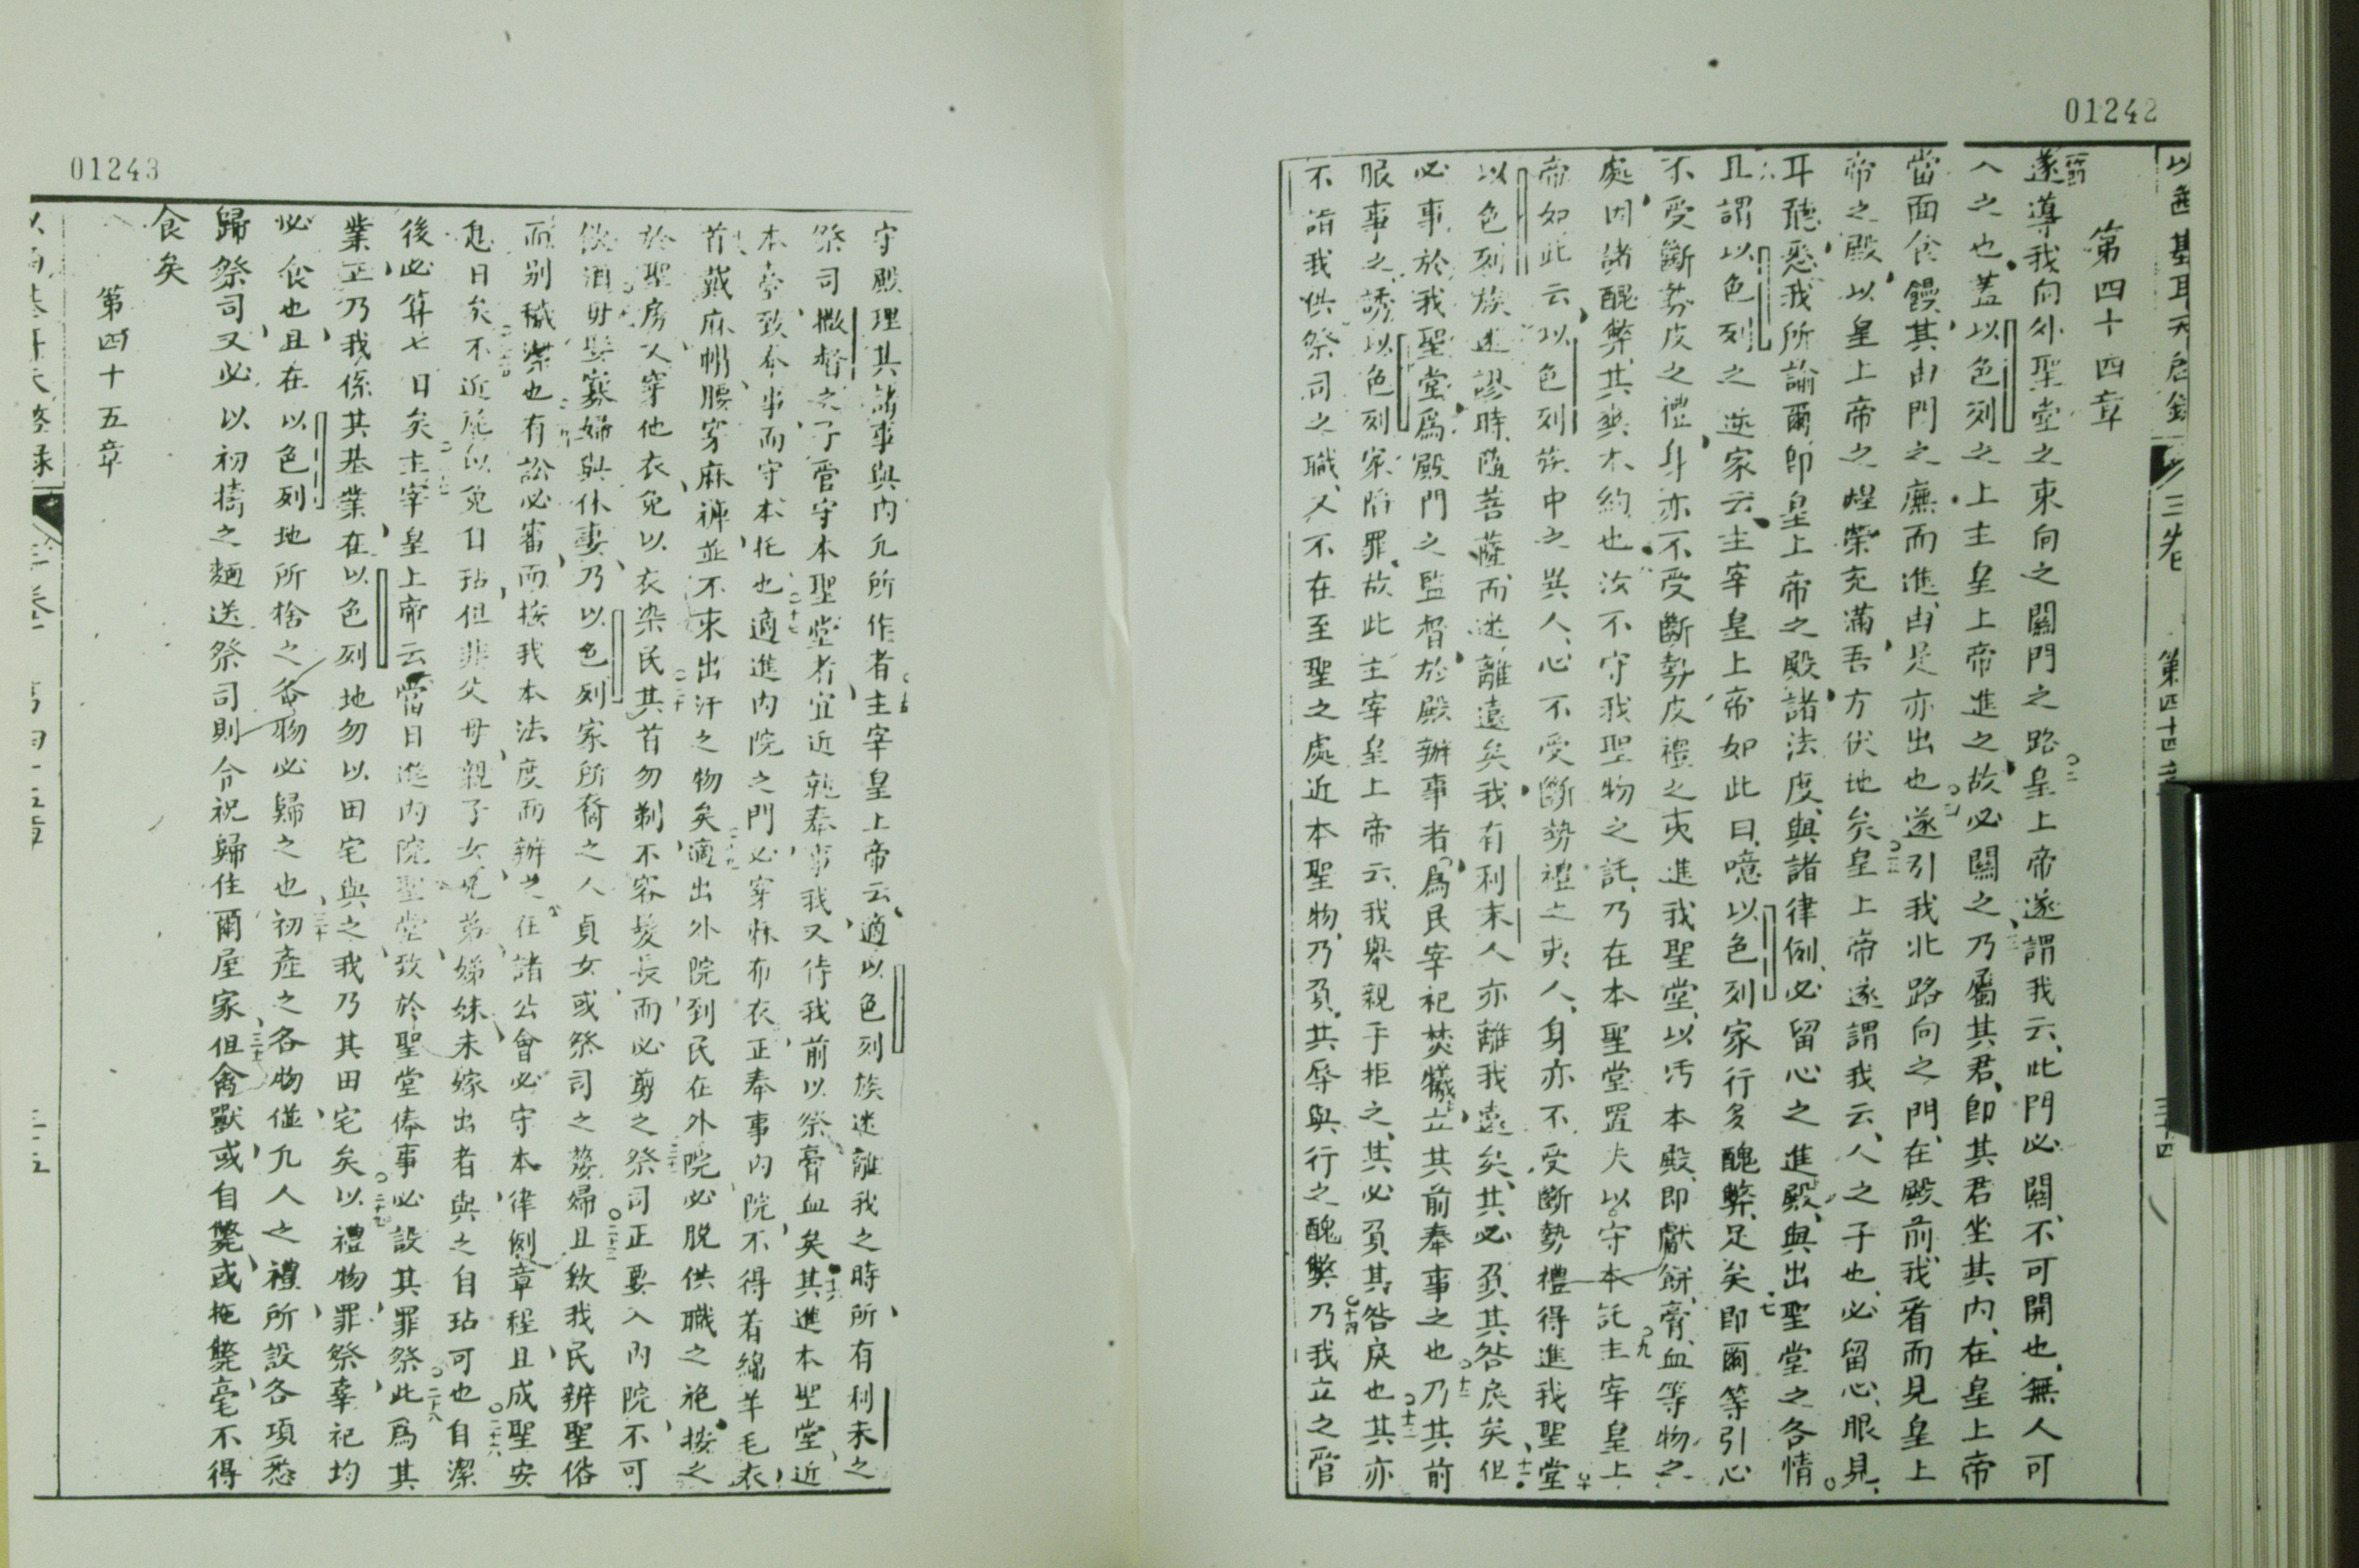 01242
以西基耳天啟錄 三卷 第四十四章 三十四
第四十四章
遂導我向外聖堂之東向之關門之路皇上帝遂謂我云此門必關不可開也無人可
入之也蓋以色列之上主皇上帝進之故必關之乃屬其君即其君坐其內在皇上帝
當面食饅其由門之廡而進由是亦出也遂引我北路向之門在殿前我看而見皇上
帝之殿以皇上帝之煌榮充滿吾方伏地矣皇上帝遂謂我云人之子也必留心眼見
耳聽悉我所諭爾即皇上帝之殿諸法度與諸律例必留心之進殿與出聖堂之各情
且謂以色列之逆家云主宰皇上帝如此曰噫以色列家行多醜弊足矣即爾等引心
不受斷勢皮之禮身亦不受斷勢皮禮之夷進我聖堂以汚本殿即獻餅膏血等物之
處因諸醜弊其與本約也汝不守我聖物之託乃在本聖堂置夫以守本託主宰皇上
帝如此云以色列族中之異人心不受斷勢禮之夷人身亦不受斷勢禮得進我聖堂
以色列族迷謬時隨菩薩而迷離遠矣我有利未人亦離我遠矣其必負其咎戾矣但
必事於我聖堂爲殿門之監督於殿辦事者爲民宰祀焚犧立其前奉事之也乃其前
服事之誘以色列家陷罪故此主宰皇上帝云我舉親手拒之其必負其咎戾也其亦
不詣我供祭司之職又不在至聖之處近本聖物乃負其辱與行之醜弊乃我立之管
01243
守殿理其諸事與內凡所作者主宰皇上帝云適以色列族迷離我之時所有利未之
祭司撒督之子管守本聖堂者宜近就奉事我又侍我前以祭膏血矣其進本聖堂近
本臺致奉事而守本托也適進內院之門必穿麻布衣正奉事內院不得着綿羊毛衣
首戴麻帽腰穿麻褲並不束出汗之物矣適出外院到民在外院必脫供職之袍按之
於聖房又穿他衣免以衣染民其首勿剃不容髮長而必剪之祭司正要入內院不可
飲酒毋娶寡婦與休妻乃以色列家所裔之人貞女或祭司之嫠婦且敎我民辨聖俗
而別穢潔也有訟必審而按我本法度而辦之在諸公會必守本律例章程且成聖安
息日矣不近屍以免自玷但非父母親子女兄弟娣妹未嫁出者與之自玷可也自潔
後必算七日矣主宰皇上帝云當日進內院聖堂致於聖堂俸事必設其罪祭此爲其
業正乃我係其基業在以色列地勿以田宅與之我乃其田宅矣以禮物罪祭宰祀均
必食也且在以色列地所捨之各物必歸之也初產之各物僅凡人之禮所設各項悉
歸祭司又必以初擣之麵送祭司則令祝歸住爾屋家但禽獸或自斃或拖斃毫不得
食矣
第四十五章
三卷 第四十五章 三十五